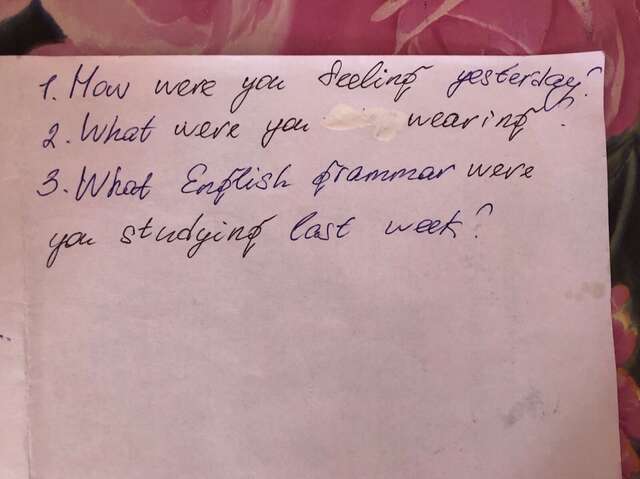 1. How were you feeling yesterday?
2. What were you wearing?
3. What English grammar were
you studying last week?